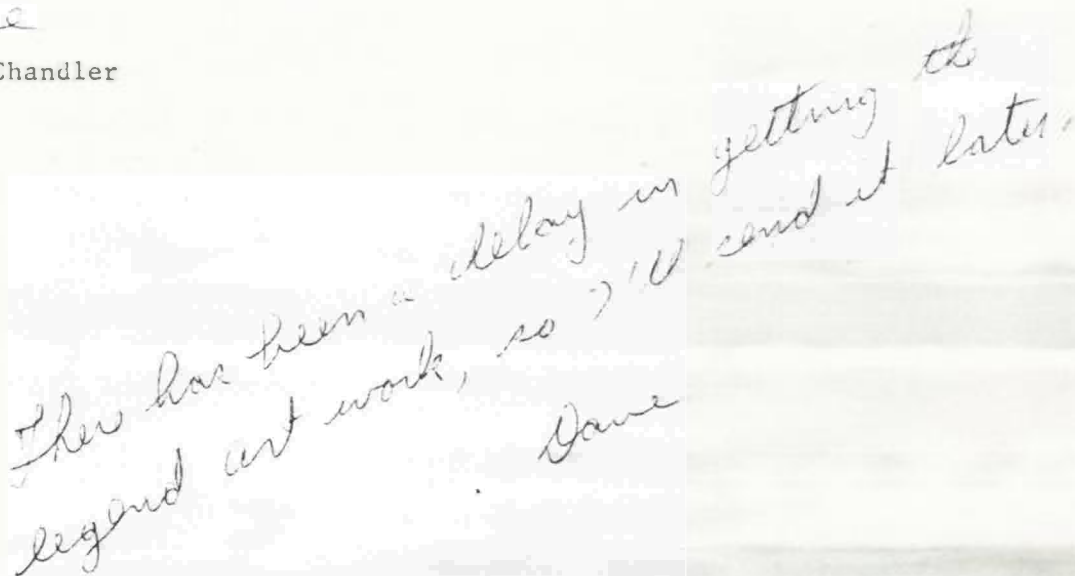 Chandler
There has been a delay in getting the
legend art work, so I'll send it later.
Dave